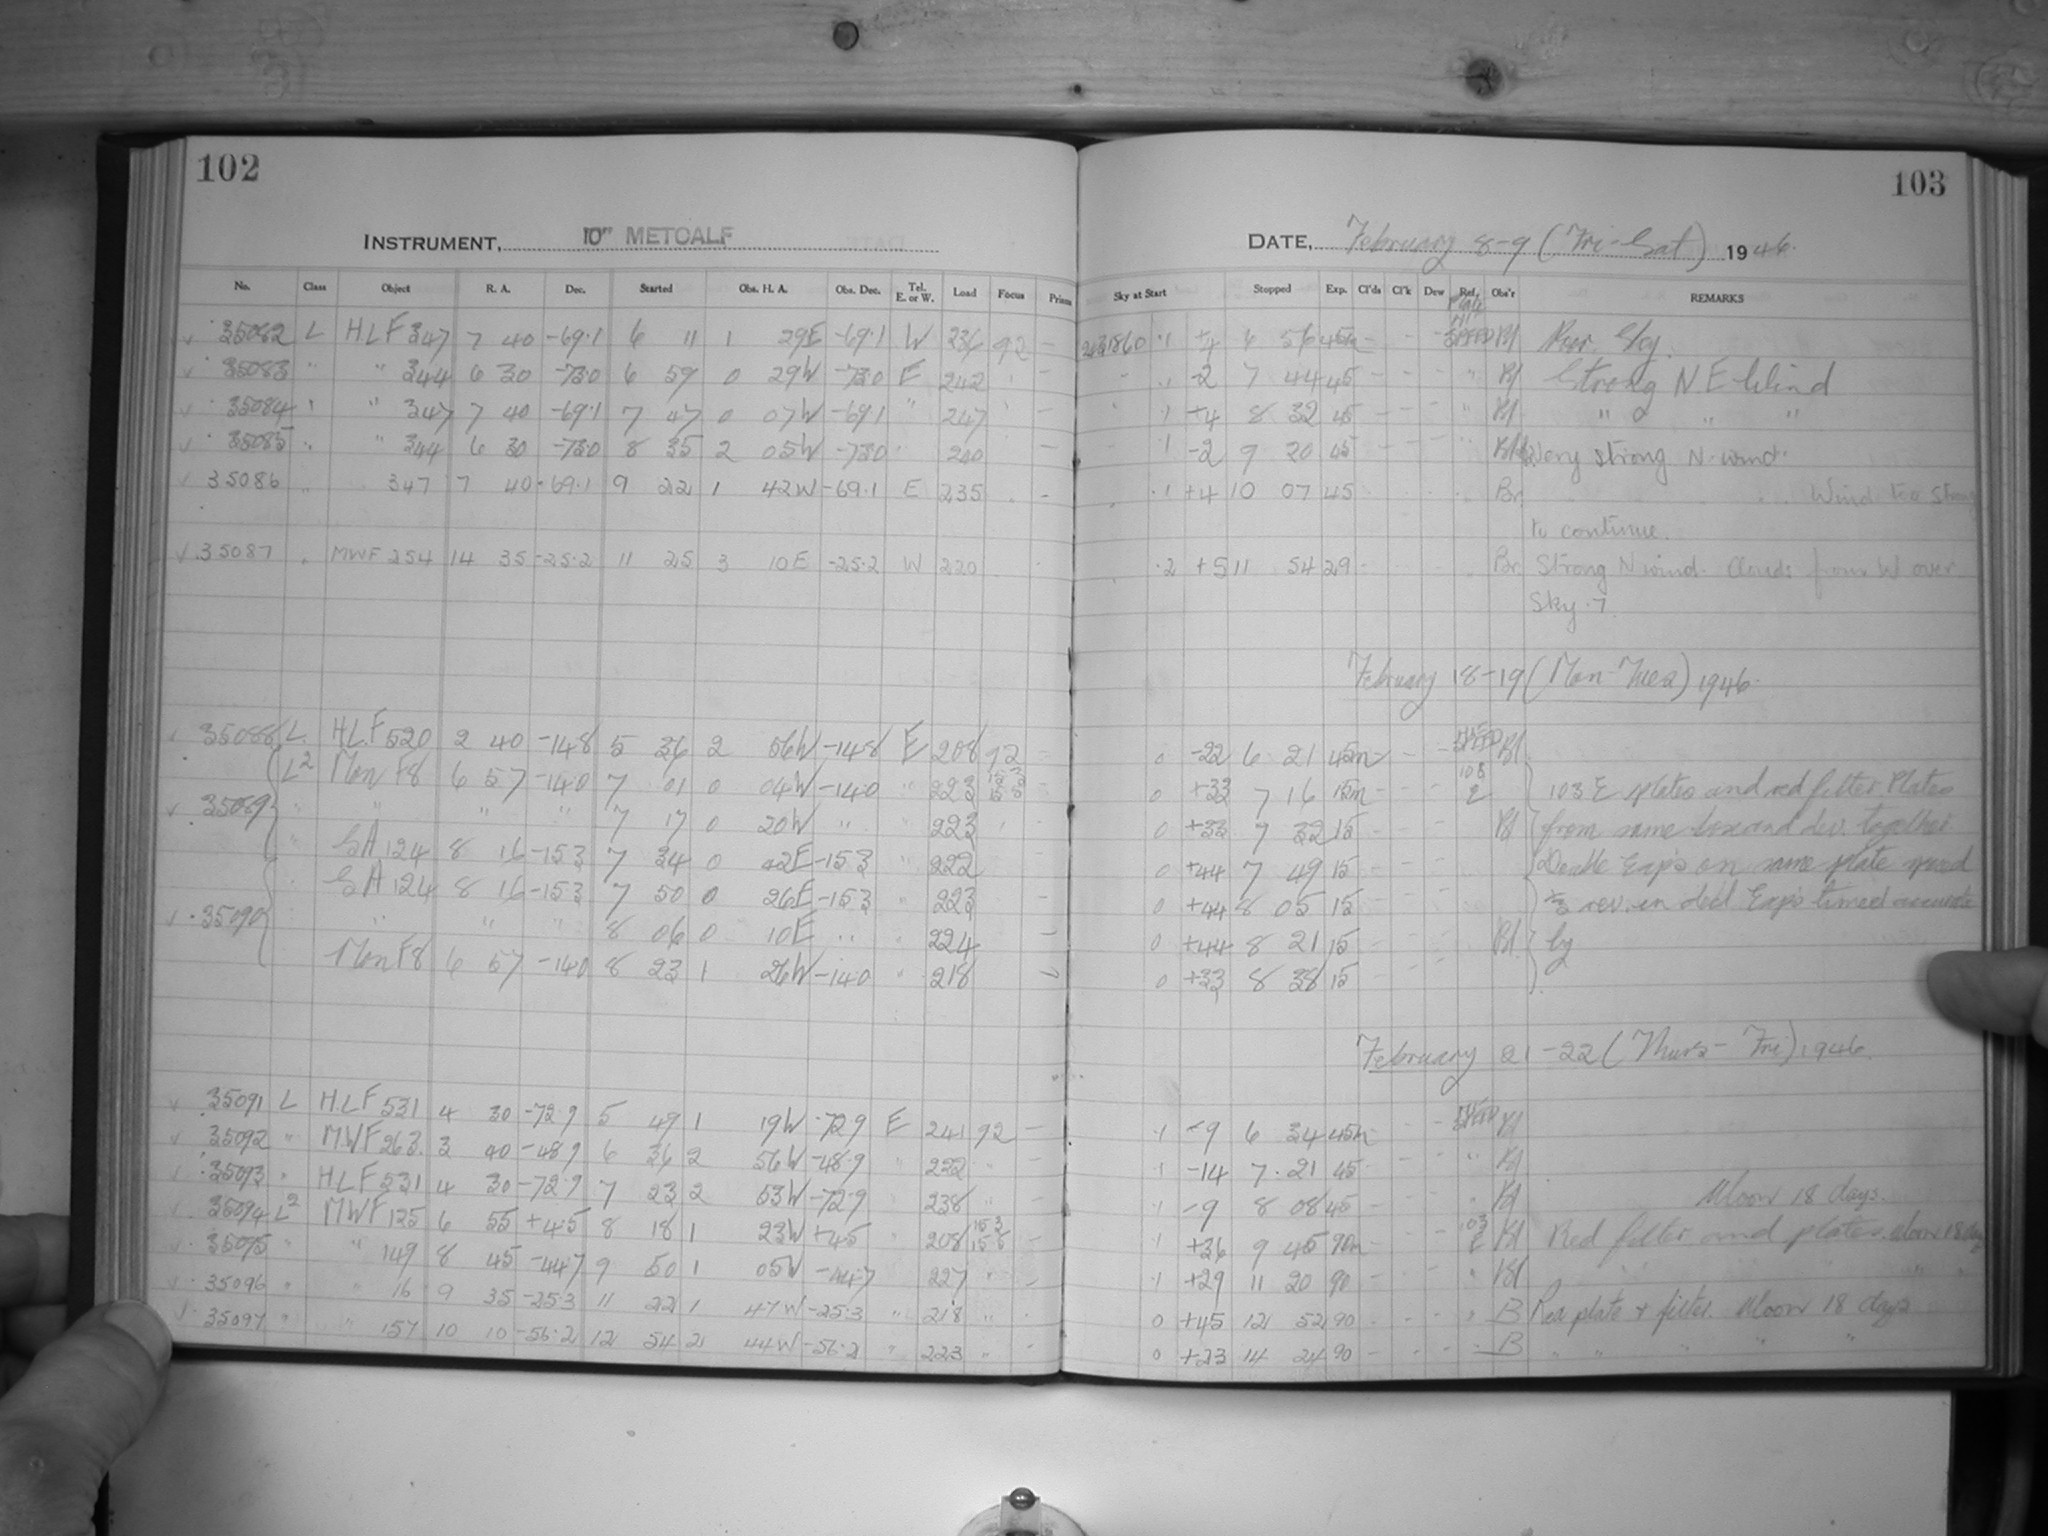 102
103
INSTRUMENT, 10" METCALF
DATE, February 8-9 (Fri-Sat) 1946.
No. Class Object R. A. Dec. Started Obs. H. A. Obs. Dec. Tel. E. or W. Load Focus Prism Sky at Start Stopped Exp. Cl'ds Cl'k Dew Ref. Obs'r REMARKS
35082 L HLF 347 7 40 -69.1 6 11 1 29E -69.1 W 236 92 - .1 +4 6 56 45m - - - SPEED Bl Sky.
35083 " " 344 6 30 -73.0 6 59 0 29W -73.0 E 242 " - " .1 -2 7 44 45 - - - " Bl Strong N.E Wind
35084 " " 347 7 40 -69.1 7 47 0 07W -69.1 " 247 - " .1 +4 8 32 45 - - - " Bl " " "
35085 " " 344 6 30 -73.0 8 35 2 05W -73.0 " 240 - .1 -2 9 20 45 - - - " Very strong N. wind.
35086 " 347 7 40 -69.1 9 22 1 42W -69.1 E 235 " - .1 +4 10 07 45 Br. " " " Wind too strong
to continue.
35087 " MWF 254 14 35 -25.2 11 25 3 10E -25.2 W 220 .2 +5 11 54 29 Br. Strong N wind. Clouds from W over
Sky .7
February 18-19 (Mon-Tues) 1946.
35088 L. H.L.F 520 2 40 -14.8 5 36 2 56W -14.8 E 208 92 - 0 -22 6 21 45m - - - SPEED Bl
L2 Mon F8 6 57 -14.0 7 01 0 04W -14.0 " 223 - 0 +33 7 16 15m - - - 103 E 103 E plates and red filter Plates
35089 " " " " 7 17 0 20W " " 223 " - 0 +33 7 32 15 - Bl from same box and dev. together
" SA 124 8 16 -15.3 7 34 0 42E -15.3 " 222 - 0 +44 7 49 15 - Double Exp's on same plate
SA 124 8 16 -15.3 7 50 0 26E -15.3 " 223 - 0 +44 8 05 15 - rev. in decl. Exp's timed accurate
35090 " " " 8 06 0 10E " " 224 - 0 +44 8 21 15 - Bl. ly
Mon F8 6 57 -14.0 8 23 1 26W -14.0 " 218 0 +33 8 38 15 -
February 21-22 (Thurs-Fri) 1946.
35091 L H.L.F 531 4 30 -72.9 5 49 1 19W -72.9 E 241 92 - .1 -9 6 34 45m - - - SPEED Bl
35092 " MWF 263. 3 40 -48.9 6 36 2 56W -48.9 " 222 " - .1 -14 7 21 45 - - - " Bl
35093 " H.L.F 531 4 30 -72.9 7 23 2 53W -72.9 " 238 " - .1 -9 8 08 45 - - - " Bl Moon 18 days.
35094 L2 MWF 125 6 55 +4.5 8 18 1 23W +4.5 " 208 - .1 +36 9 45 90m - - - 103 E Bl Red filter and plates. Moon 18 days
35095 " " 149 8 45 -44.7 9 50 1 05W -44.7 227 " - .1 +29 11 20 90 - - - " Bl " " " "
35096 " " 16 9 35 -25.3 11 22 1 47W -25.3 " 218 " 0 +45 12 52 90 - - - " B Red plate + filter. Moon 18 days
35097 " " 157 10 10 -56.2 12 54 2 44W -56.2 " 223 " - 0 +23 14 24 90 - - - " B " " " "